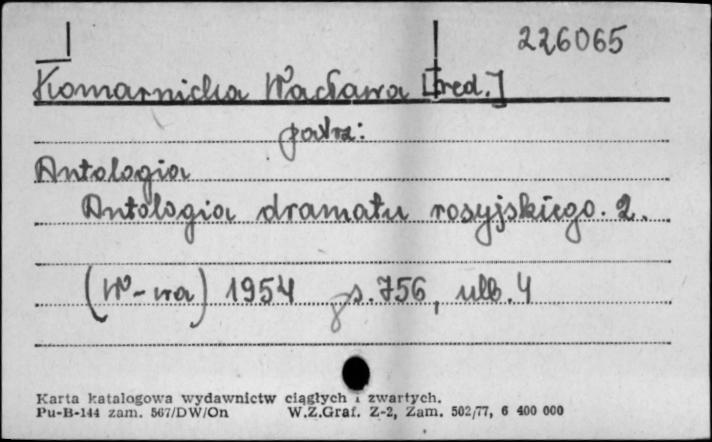 226065
Komarnicka Wacława [red.]
patrz:
Antologia
Antologia dramatu rosyjskiego. 2.
(W-wa) 1954 s. 756, ulb. 4
Karta katalogowa wydawnictw ciągłych i zwartych.
Pu-B-144 zam. 567/DW/On W.Z.Graf. Z-2, Zam. 502/77, 6 400 000